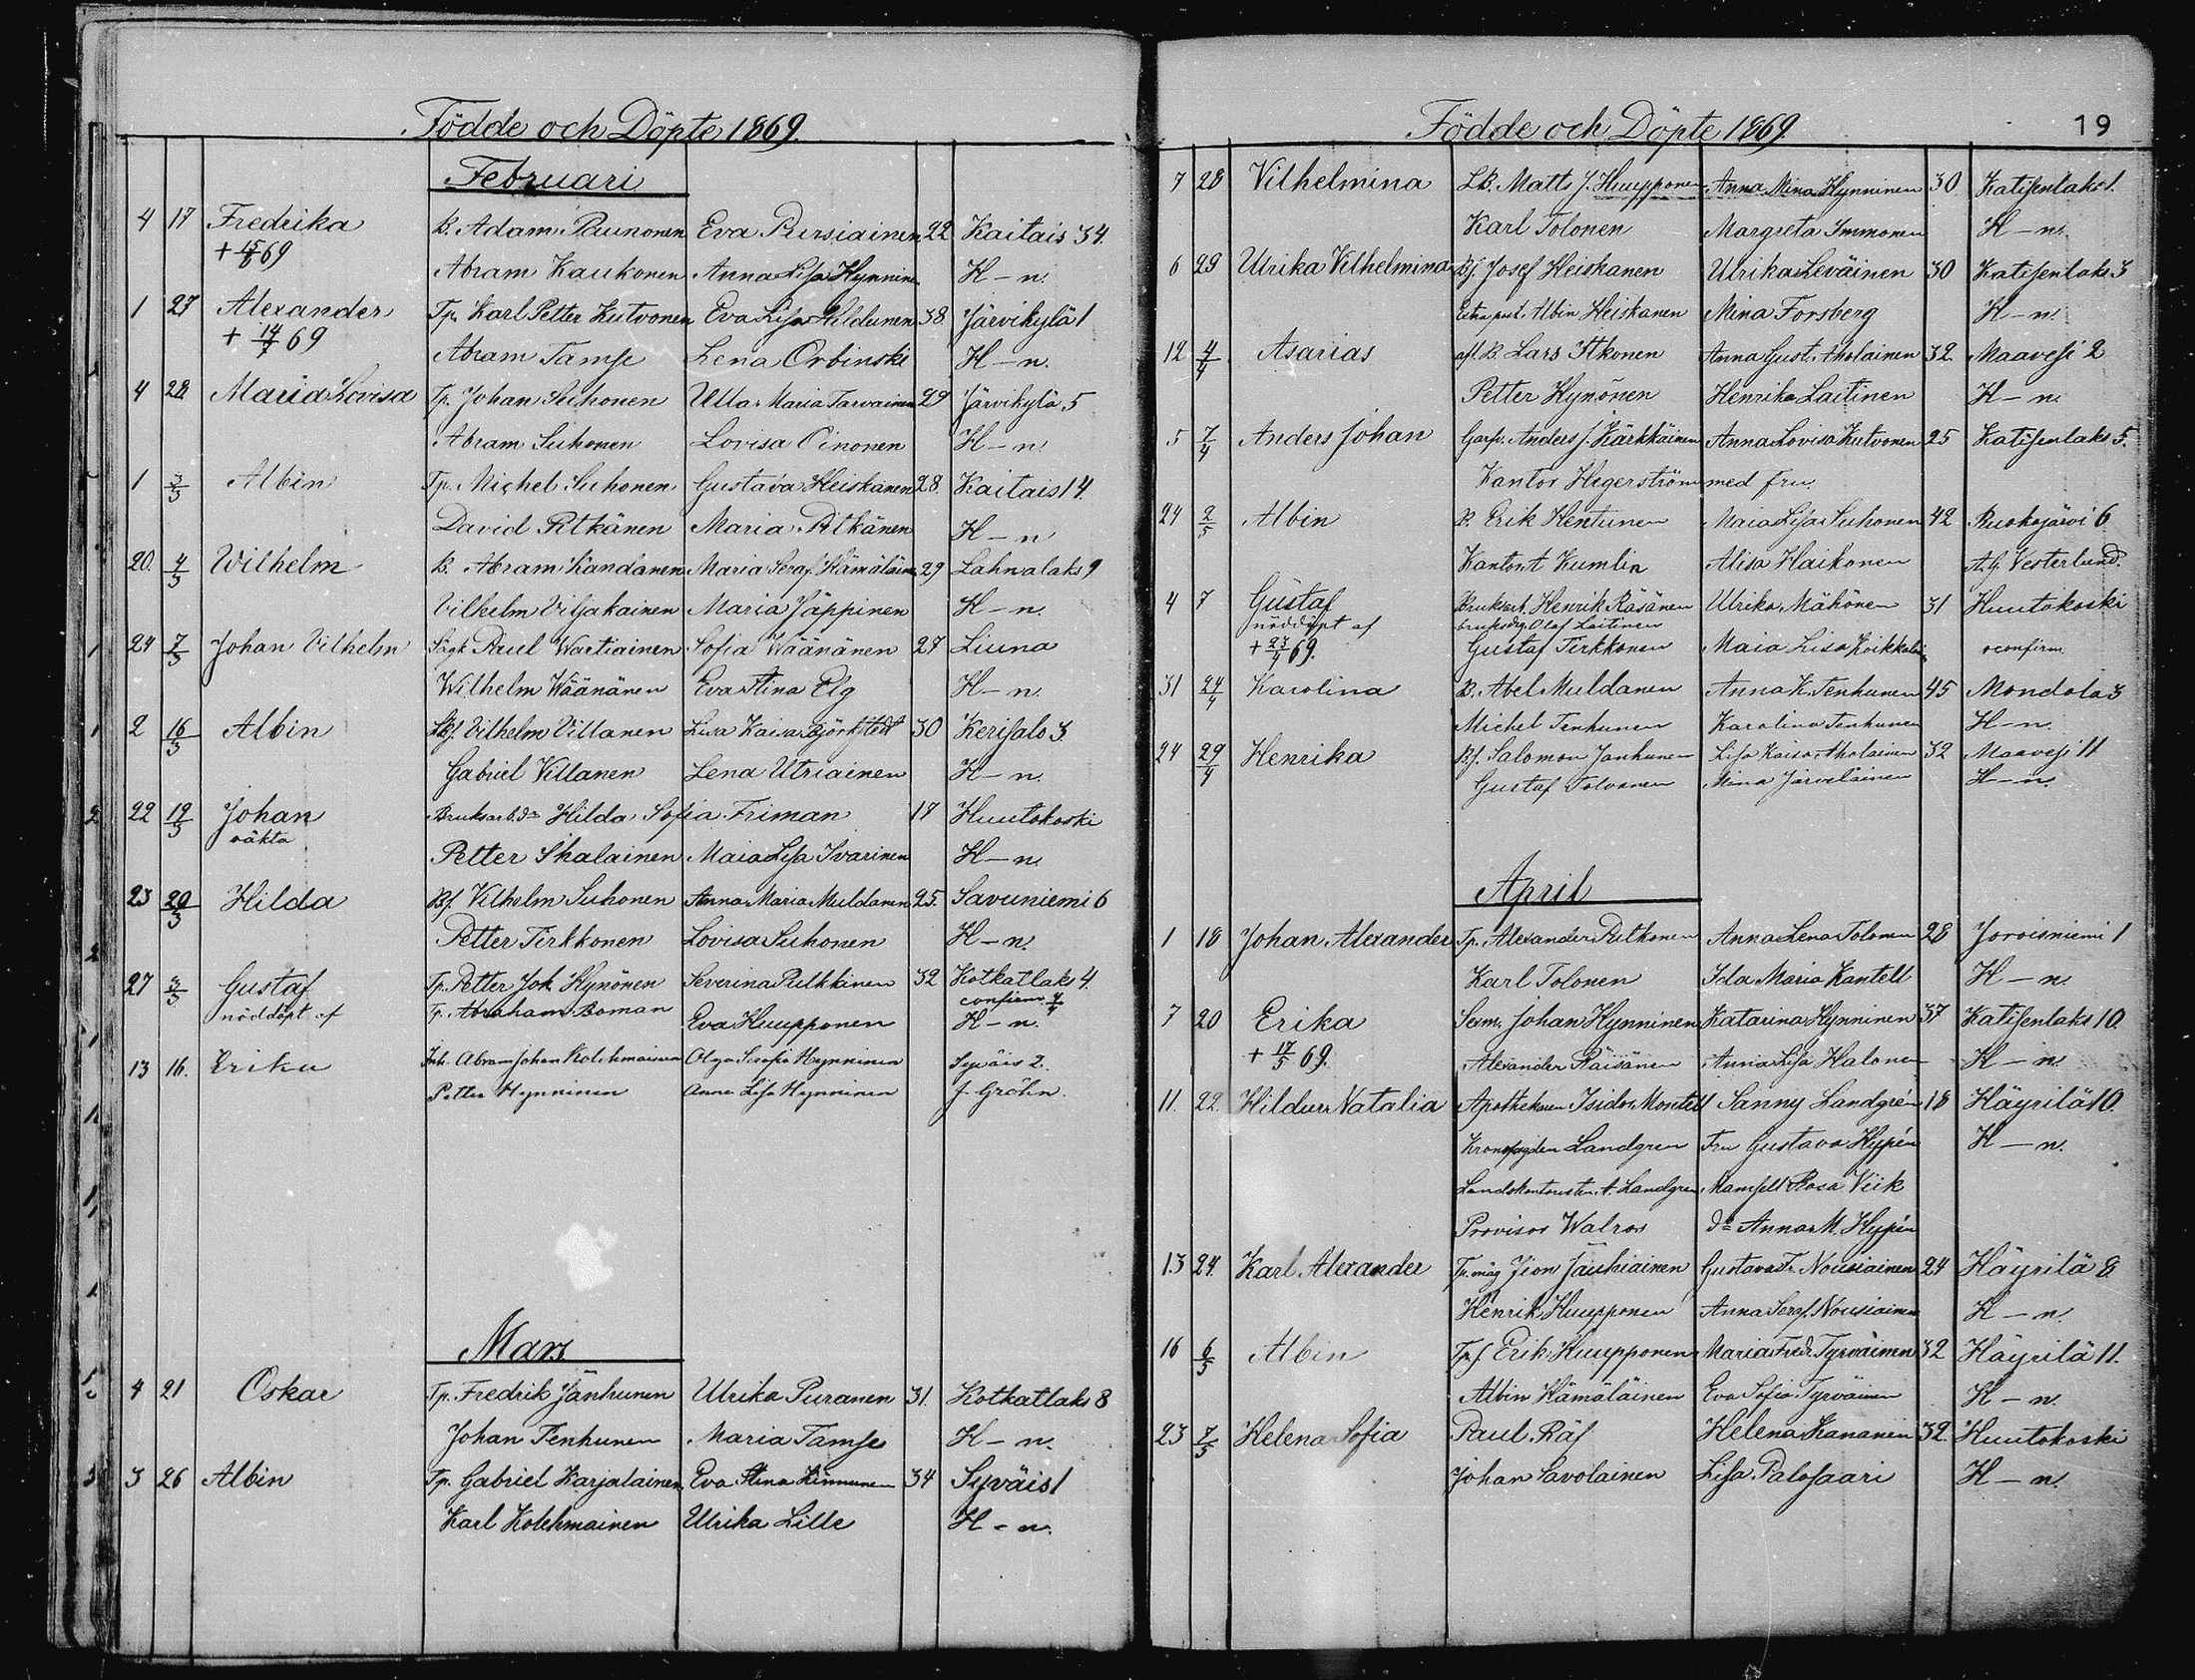 Födde och Döpte 1869.
Februari
4 17 Fredrika B. Adam Paunonen Eva Pursiainen 22 Kaitais 34.
+ 15/8 69 Abram Kaukonen Anna Lisa Hynninen H-n.
1 27 Alexander Tp. Karl Petter Kutvonen Eva Lisa Hildunen 38 Järvikylä 1
+ 14/7 69 Abram Tamse Lena Orbinski H-n.
4 28 Maria Lovisa Tp. Johan Suhonen Ulla Maria Tarvainen 29 Järvikylä 5
Abram Suhonen Lovisa Oinonen H-n
1 3/3 Albin Tp. Michel Suhonen Gustava Heiskanen 28. Kaitais 14.
David Pitkänen Maria Pitkänen H-n
20. 4/3 Wilhelm B. Abram Kandanen Maria Seraf. Hämäläin. 29 Lahnalaks 9
Vilhelm Viljakainen Maria Jäppinen H-n.
24 7/3 Johan Vilhelm Sågk. Paul Wartiainen Sofia Wäänänen 27 Liuna
Wilhelm Wäänänen Eva Stina Elg H-n.
2 16/3 Albin Vilhelm Villanen Lisa Kaisa Björkstedt 30 Kerisalo 3.
Gabriel Villanen Lena Utriainen H-n.
22 19/3 Johan Bruksarb. dr Hilda Sofia Friman 17 Huutokoski
oäkta Petter Ikalainen Maia Lisa Ivarinen H-n.
23 20/3 Hilda Bf. Vilhelm Suhonen Anna Maria Muldanen 25. Savuniemi 6
Petter Tirkkonen Lovisa Suhonen H-n.
27 3/3 Gustaf Tp. Petter Joh. Hynönen Severina Pulkkinen 32 Kotkatlaks 4.
nöddöpt af Tp. Abraham Boman Eva Huupponen confirm 4/4 H-n.
13 16. Erika Inh. Abram Johan Kolehmainen Olga Serafia Hynninen Syväis 2.
Petter Hynninen Anna Lisa Hynninen J. Gröhn.
Mars
4 21 Oskar Tp. Fredrik Jänhunen Ulrika Puranen 31. Kotkatlaks 8
Johan Tenhunen Maria Tamse H-n.
3 26 Albin Tp. Gabriel Karjalainen Eva Stina Kinnunen 34 Syväis 1
Karl Kolehmainen Ulrika Lille H-n.
Födde och Döpte 1869. 19
7 28 Vilhelmina LB. Matts J. Huupponen Anna Mina Hynninen 30 Katisenlaks 1.
Karl Tolonen Margreta Immonen H-n.
6 29 Ulrika Vilhelmina Bf. Josef Heiskanen Ulrika Leväinen 30 Katisenlaks 3
Albin Heiskanen Mina Forsberg H-n.
12 4/4 Asarias afl. B. Lars Itkonen Anna Gust. Aholainen 32 Maavesi 2
Petter Hynönen Henrika Laitinen H-n.
5 7/4 Anders Johan Garfv. Anders J. Kärkkäinen Anna Lovisa Kutvonen 25 Katisenlaks 5.
Kantor Hegerström med fru.
24 2/5 Albin B. Erik Hentunen Maia Lisa Suhonen 42 Ruokojärvi 6
Kantor A Kumlin Alisa Haikonen A. G. Vesterlund.
4 7 Gustaf Bruksarb. Henrik Räsänen Ulrika Mähönen 31 Huutokoski
nöddöpt af bruksdrg. Olof Laitinen
+ 23/4 69. Gustaf Tirkkonen Maia Lisa Koikkalain oconfirm
31 24/4 Karolina B. Abel Muldanen Anna K. Tenhunen 45 Mondola 3
Michel Tenhunen Karolina Tenhunen H-n.
24 29/4 Henrika Bf. Salomon Janhunen Lisa Kaisa Aholainen 32 Maavesi 11
Gustaf Tolvanen Mina Järveläinen H-n.
April
1 18 Johan Alexander Tp. Alexander Pitkonen Anna Lena Tolonen 28 Joroisniemi 1
Karl Tolonen Ida Maria Kantell H-n.
7 20 Erika Sexm. Johan Hynninen Katarina Hynninen 37 Katisenlaks 10.
+ 17/5 69. Alexander Räisänen Anna Lisa Halonen H-n.
11. 22. Hildur Natalia Apothekaren Isidor Montell Sanny Landgrén 18 Häyrilä 10.
Kronofogden Landgren Fru Gustava Hypén H-n.
Landskontoristen A. Landgren Mamsell Rosa Viik
Provisor Walros do Anna M. Hypén
13 24. Karl Alexander Tp. måg Jion Jauhiainen Gustava Fr. Nousiainen 24 Häyrilä 8.
Henrik Huupponen Anna Seraf. Nousiainen H-n.
16 6/5 Albin Tp. s. Erik Huupponen Maria Fred. Tyrväinen 32 Häyrilä 11.
Albin Hämäläinen Eva Sofia Tyrväinen H-n.
23 7/5 Helena Sofia Paul Räf Helena Kananen 32. Huutokoski
Johan Savolainen Lisa Palosaari H-n.